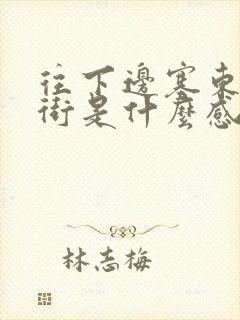 往下邊塞東
街是什麼感
林志梅